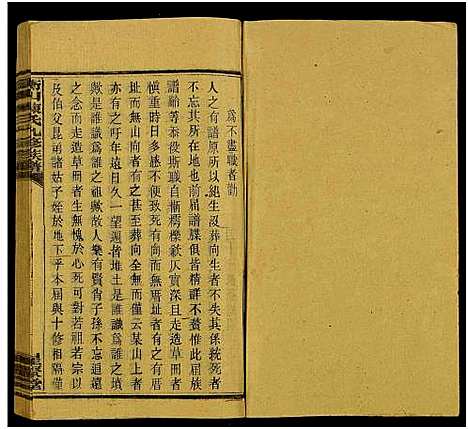 為不盡職者勸
人之有譜原所以紀生沒葬向生者不失其係統死者
有其所在地也前屆譜牒俱皆精群不贅惟此屆族
譜貽等忝役斯職自慚樗櫟欽仄實深且走造草冊者
慎重者多感不便致死有向無厝址者有之有厝
址無山向者有之甚至葬向全無而僅云某山上者
亦有之吁年遠日久一望週者堆土是誰識為誰之墳
是誰識為誰之獻故人之歟有賢肖子孫不忘追遠
之念而走造草冊者生無愧於心死可對若祖若宗以
及伯父昆弟諸姑子姪於地下乎本屆與十修相隔僅
九修族譜